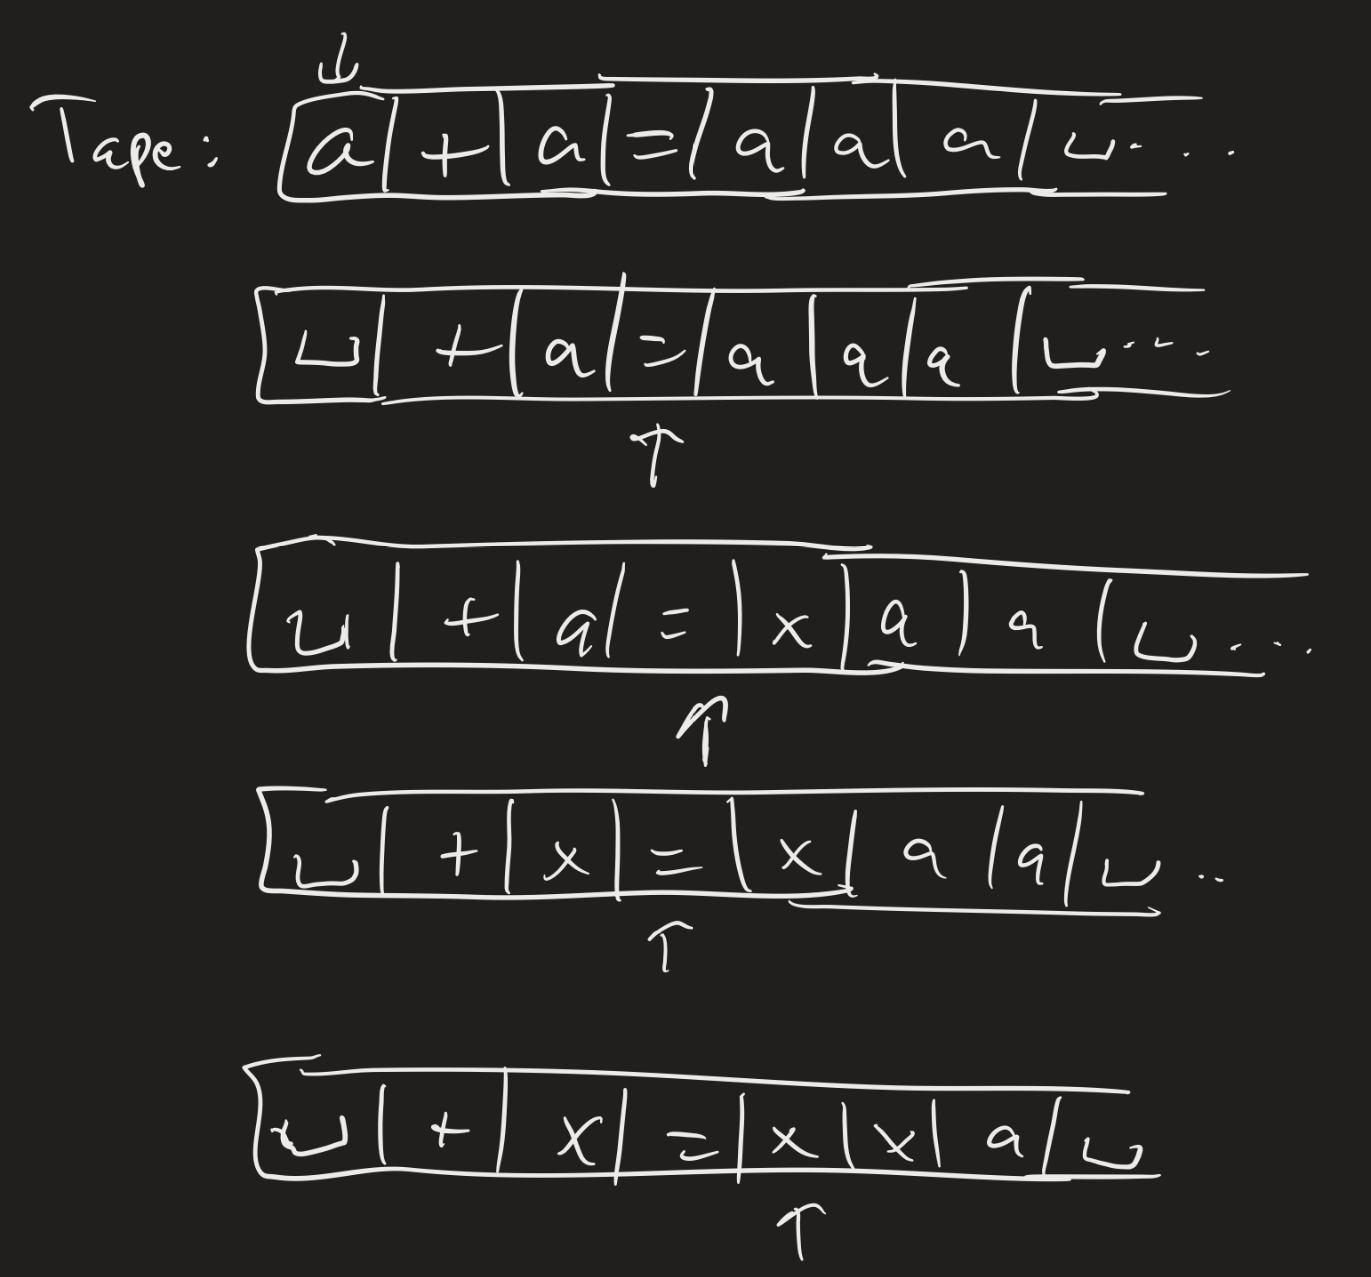 Tape: a | + | a | = | a | a | a | ⊔ ...
⊔ | + | a | = | a | a | a | ⊔ ...
⊔ | + | a | = | x | a | a | ⊔ ...
⊔ | + | x | = | x | a | a | ⊔ ..
⊔ | + | x | = | x | x | a | ⊔